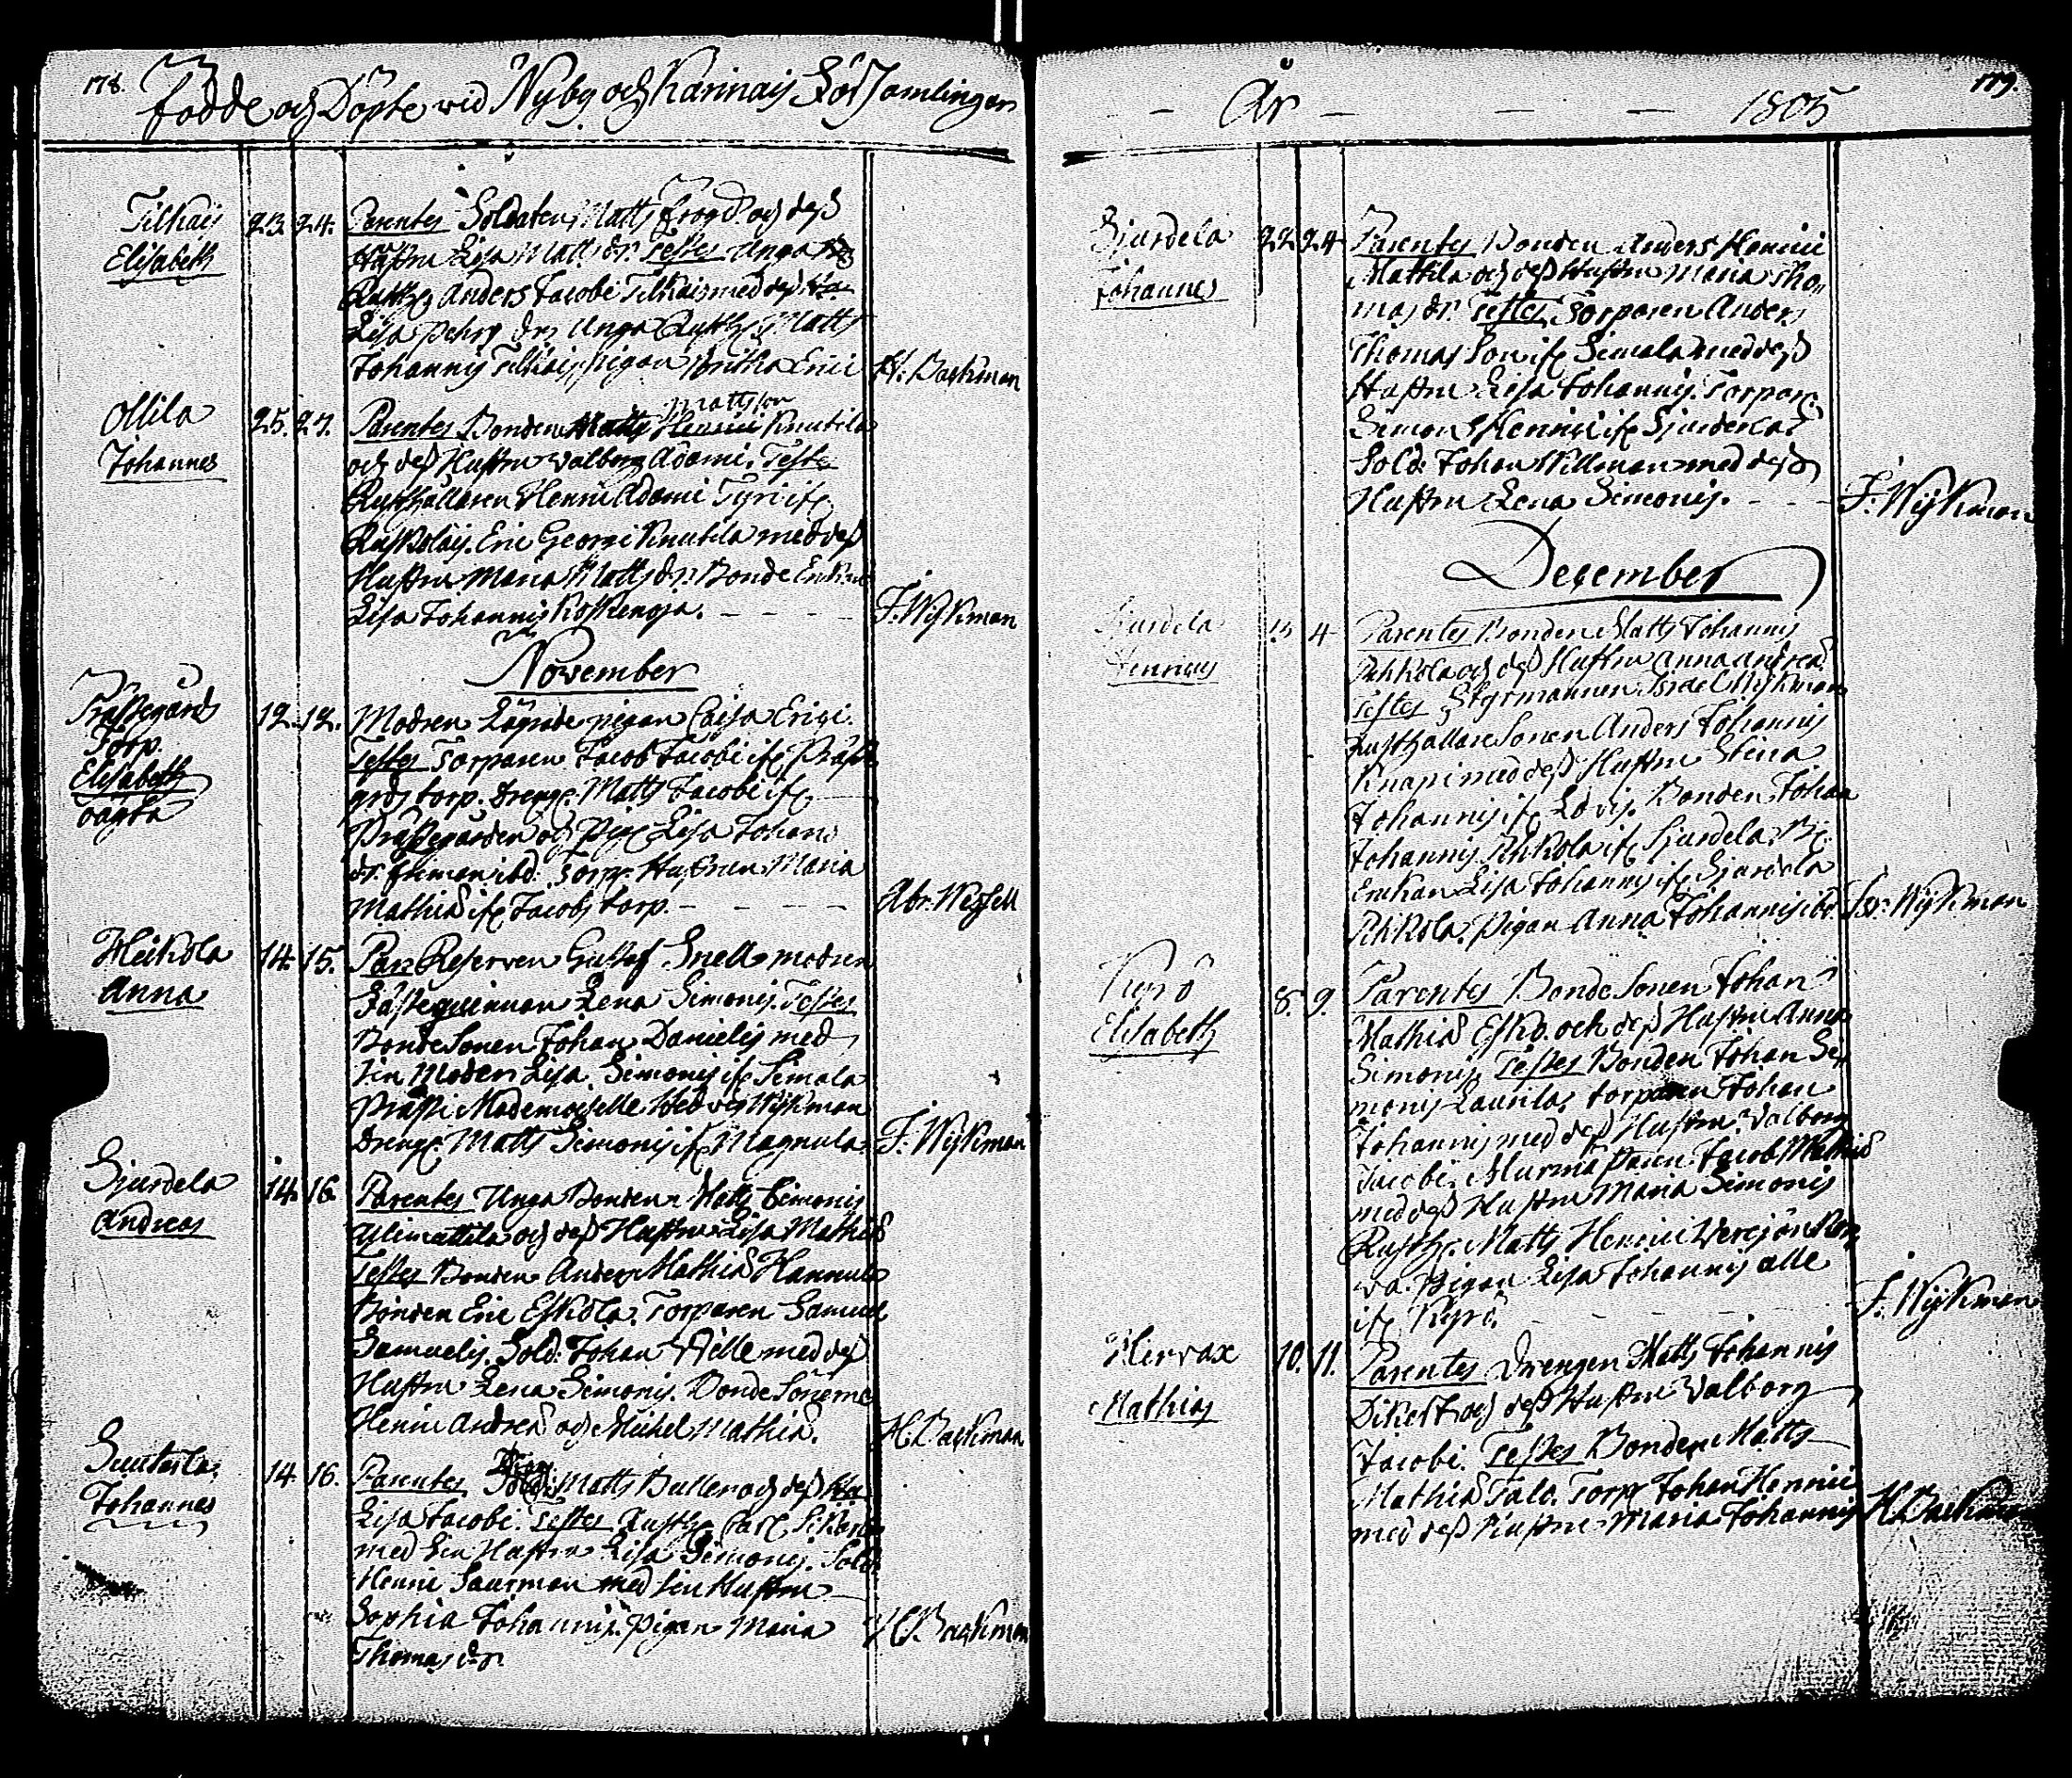 178.
Födde och Döpte vid Nyby och Karinais Församlingar
Tilkais
Elisabeth
23. 24.
Parentes Soldaten Matts Frogd och dess
Hustru Lisa Matts dr. Testes Unga
Rusth. Anders Jacobi Tilkais med dess Hu
Lisa Pehrs dr. Unga Rusth. Matts
Johannis Tilkais, pigan Britha Erici
H: Backman
Ollila
Johannes
25. 27.
Mattsson
Parentes Bonden Matts Henrici Knutila
och dess Hustru Valborg Adami. Teste
Rusthållaren Henric Adami Tyri if.
Ruskolais. Eric Georgi Knutila med dess
Hustru Maria Matts dr. Bonde Enkan
Lisa Johannis Koskenoja.
J. Wijkman
November
Prästegårds
Torp.
Elisabeth
oägta
12. 12.
Modren Lägrade pigan Caisa Erici.
Testes Torparen Jacob Jacobi if. Präste
grds torp. Dreng. Matts Jacobi if.
Prästegården och Pig. Lisa Johans
dr. Ekman ibd: Torp. Hustrun Maria
Mathiæ if. Jacobs torp.
Abr. Wessell
Heikola
Anna
14. 15.
Par: Reserven Gustaf Snell modren
Lästequinnan Lena Simonis. Testes
Bonde Sonen Johan Danielis med
sin Moder Lisa Simonis if. Simala
Prästi Mademoiselle Hedvig Wijkman
Dreng. Matts Simonis if. Magnula.
J. Wijkman
Sjurdela
Andreas
14. 16.
Parentes Unga Bonden Matts Simonis
Ylimattila och dess Hustru Lisa Mathiæ
Testes Bonden Anders Mathiæ Hannula
Bonden Eric Eskola. Torparen Samuel
Samuelis. Sold: Johan Wille med dess
Hustru Lena Simonis. Bonde Sönerne
Henric Andreæ och Michel Mathiæ.
H. Backman
Suutarla
Johannes
14 16.
Drag:
Parentes Sold: Matts Buller och dess Hu
Lisa Jacobi. Testes Rusth. Carl
med sin Hustru Lisa Simonis. Sold:
Henric Saurman med sin Hustru
Sophia Johannis. Pigan Maria
Thomas dr.
H. Backman
År 1805
179.
Sjurdela
Johannes
22 24
Parentes Bonden Anders Henrici
Mattila och dess Hustru Maria Tho
mas dr. Testes Torparen Anders
Thomas Son if. Simala med dess
Hustru Lisa Johannis. Torpar.
Simon Henrici if. Sjurdela.
Sold: Johan Willman med dess
Hustru Lena Simonis.
J. Wijkman
December
Sjurdela
Henricus
4
Parentes Bonden Matts Johannis
Pihkola och dess Hustru Anna Andreæ
Testes Styrmannen Israel Wijkman
Rusthållare Sonen Anders Johannis
Knapi med dess Hustru Stina
Johannis if. Bonden Johan
Johannis Pihkola if. Sjurdela. B:
Enkan Lisa Johannis if. Sjurdela
Pihkola. Pigan Anna Johannis ibd.
Isr: Wijkman
Kyrö
Elisabeth
8. 9.
Parentes Bonde Sonen Johan
Mathiæ Esko. och dess Hustru Anna
Simonis. Testes Bonden Johan Si
monis Laurila, torparen Johan
Johannis med dess Hustru Valborg
Jacobi. Jacob Mathiæ
med dess Hustru Maria Simonis
Rusth. Matts Henrici
va. Pigan Lisa Johannis alle
if. Kyrö.
J. Wijkman
Hirvax
Mathias
10. 11.
Parentes Drengen Matts Johannis
Dikert och dess Hustru Valborg
Jacobi. Testes Bonden Matts
Mathiæ Talo. Torp. Johan Henrici
med dess Hustru Maria Johannis
H Backman